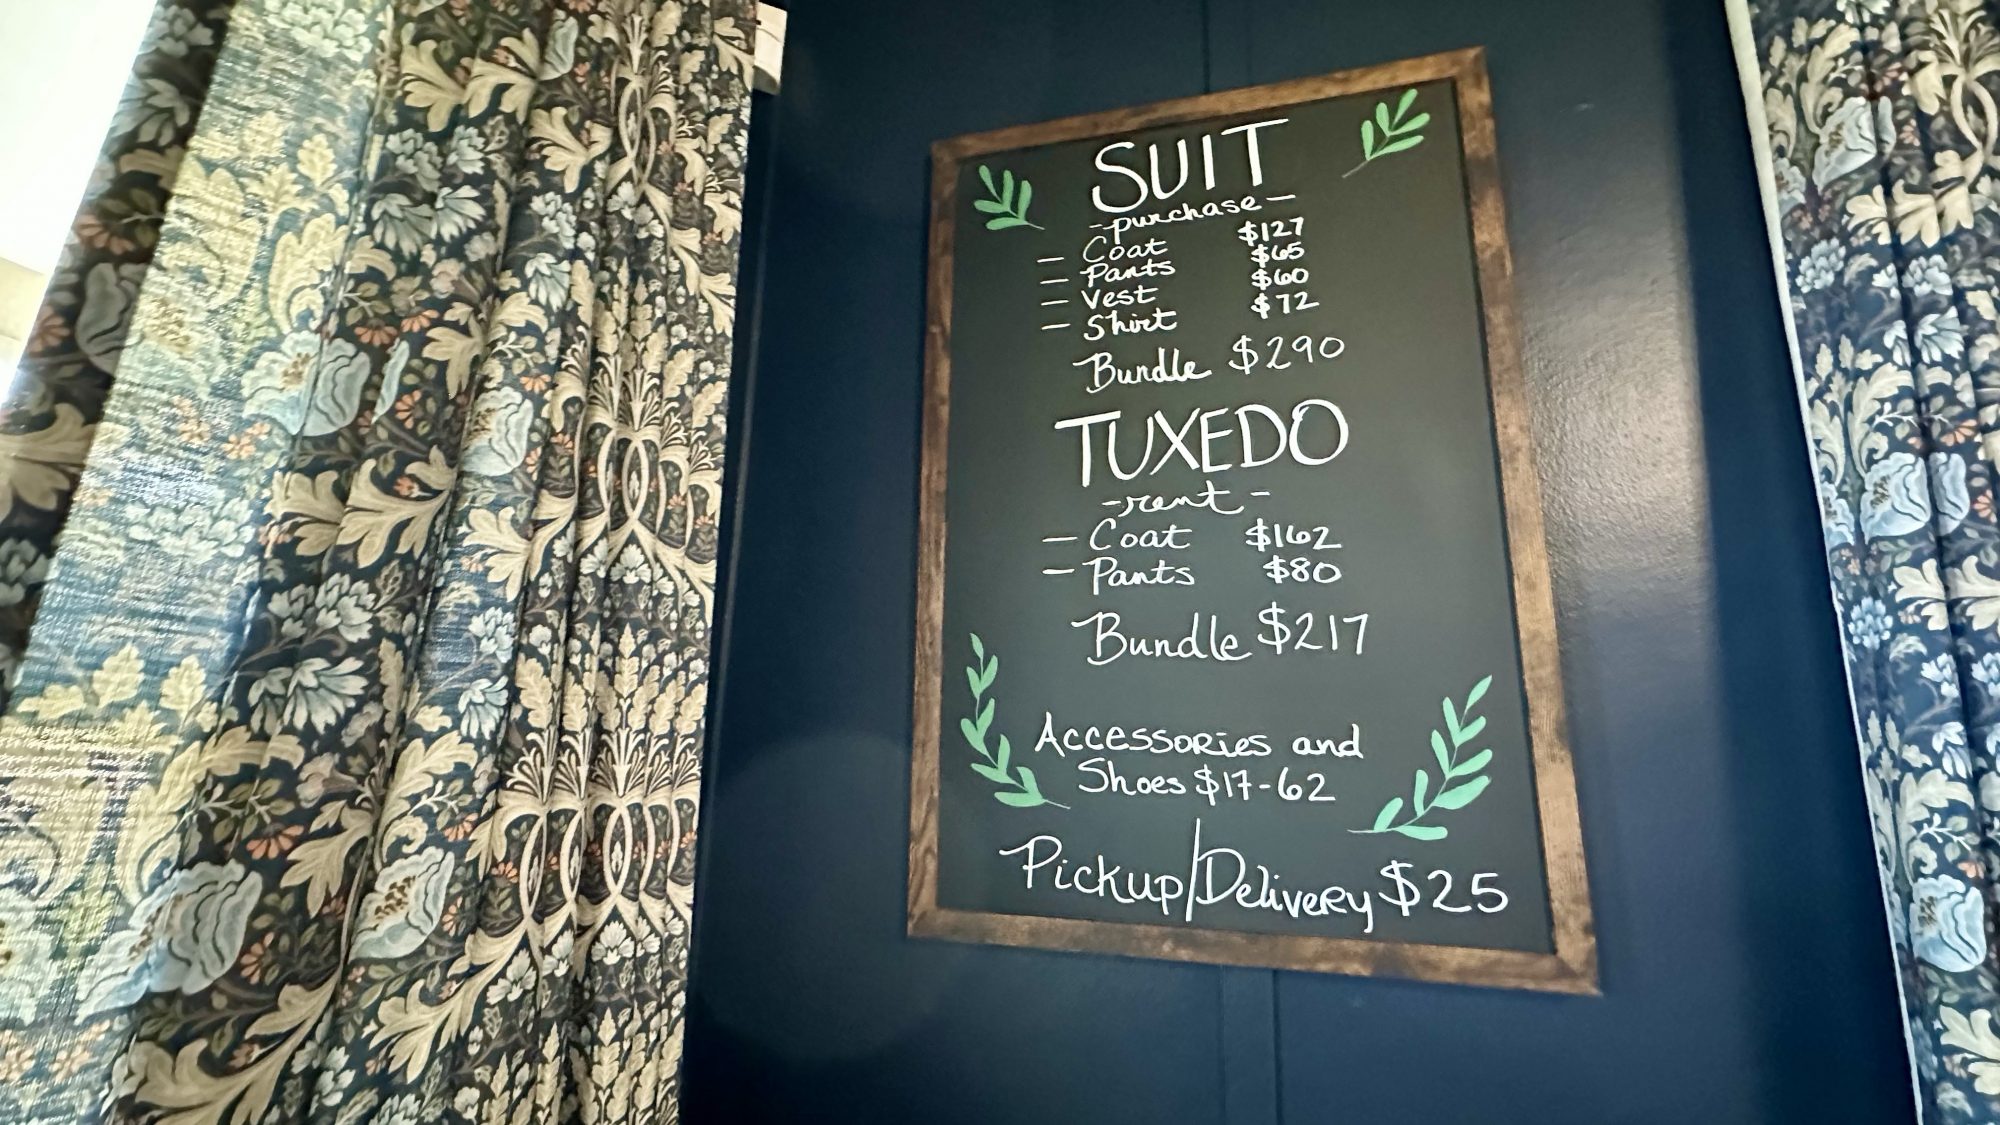 SUIT
-purchase-
- Coat $127
- Pants $65
- Vest $60
- Shirt $72
Bundle $290
TUXEDO
-rent-
- Coat $162
- Pants $80
Bundle $217
Accessories and
Shoes $17-62
Pickup/Delivery $25